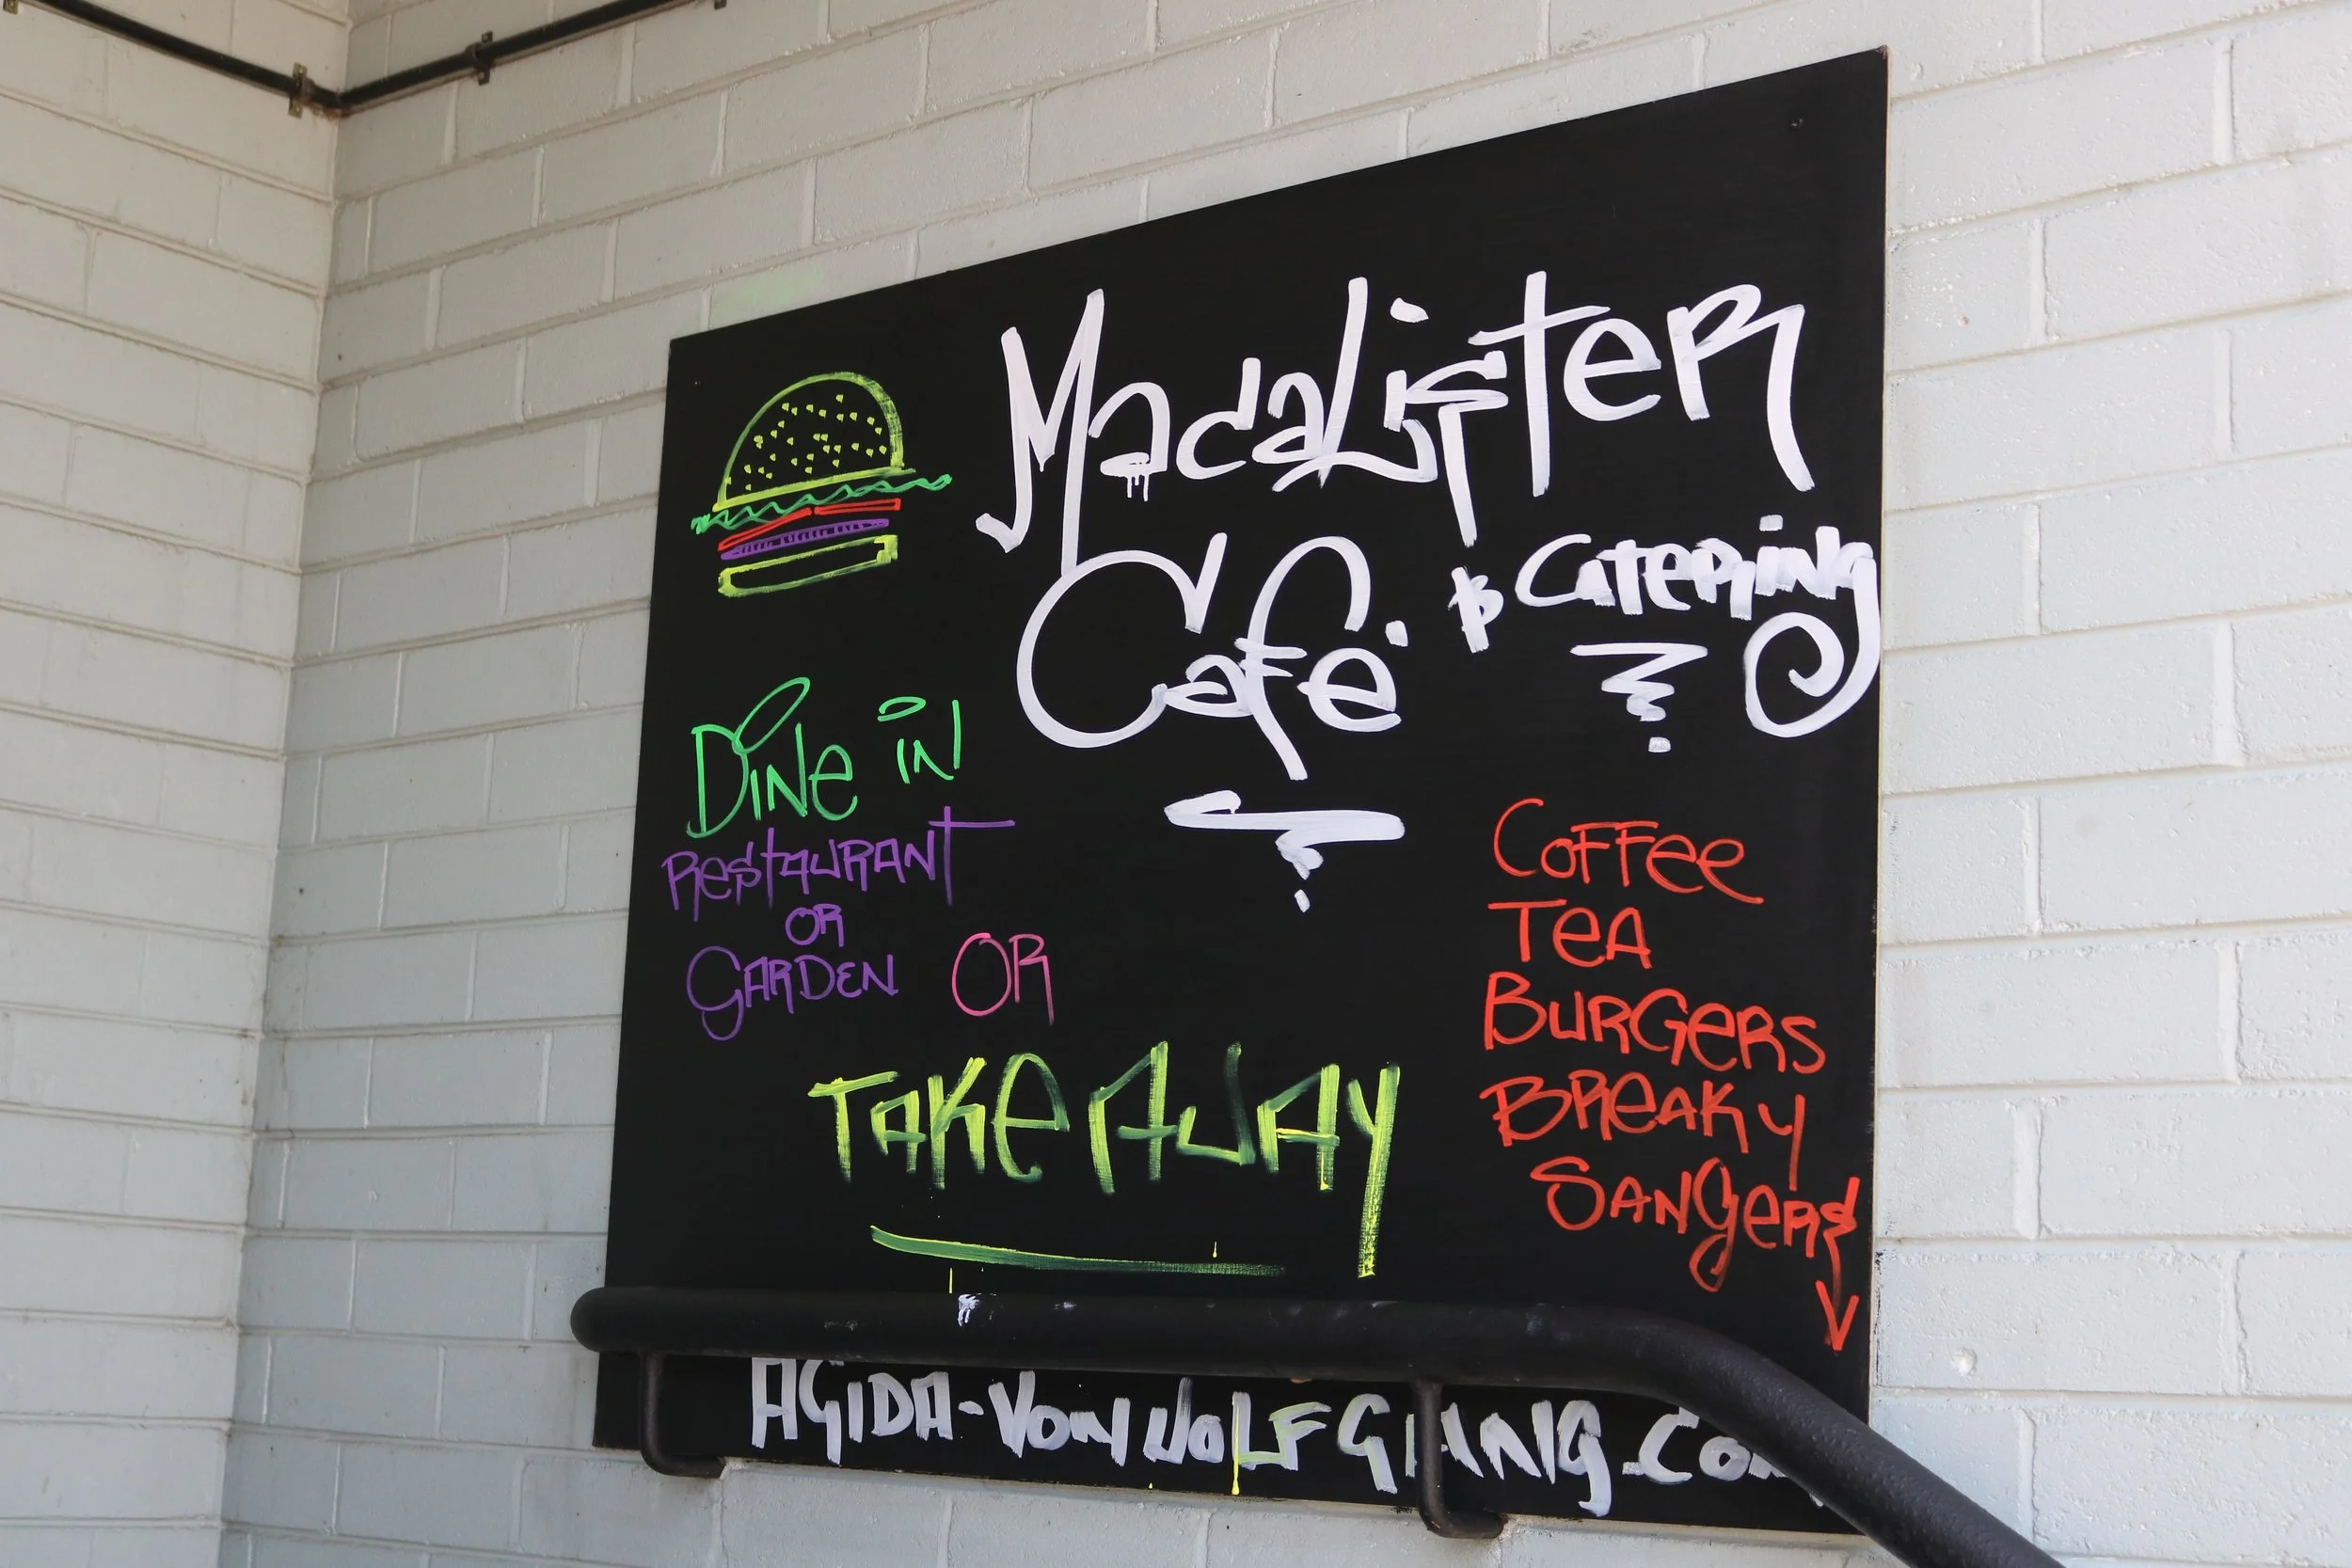 MacaLister
Cafe & Catering
Dine in
Restaurant
OR
Garden OR
Take Away
Coffee
Tea
Burgers
Breaky
Sangers
AGIDA-VONWOLFGANG.COM